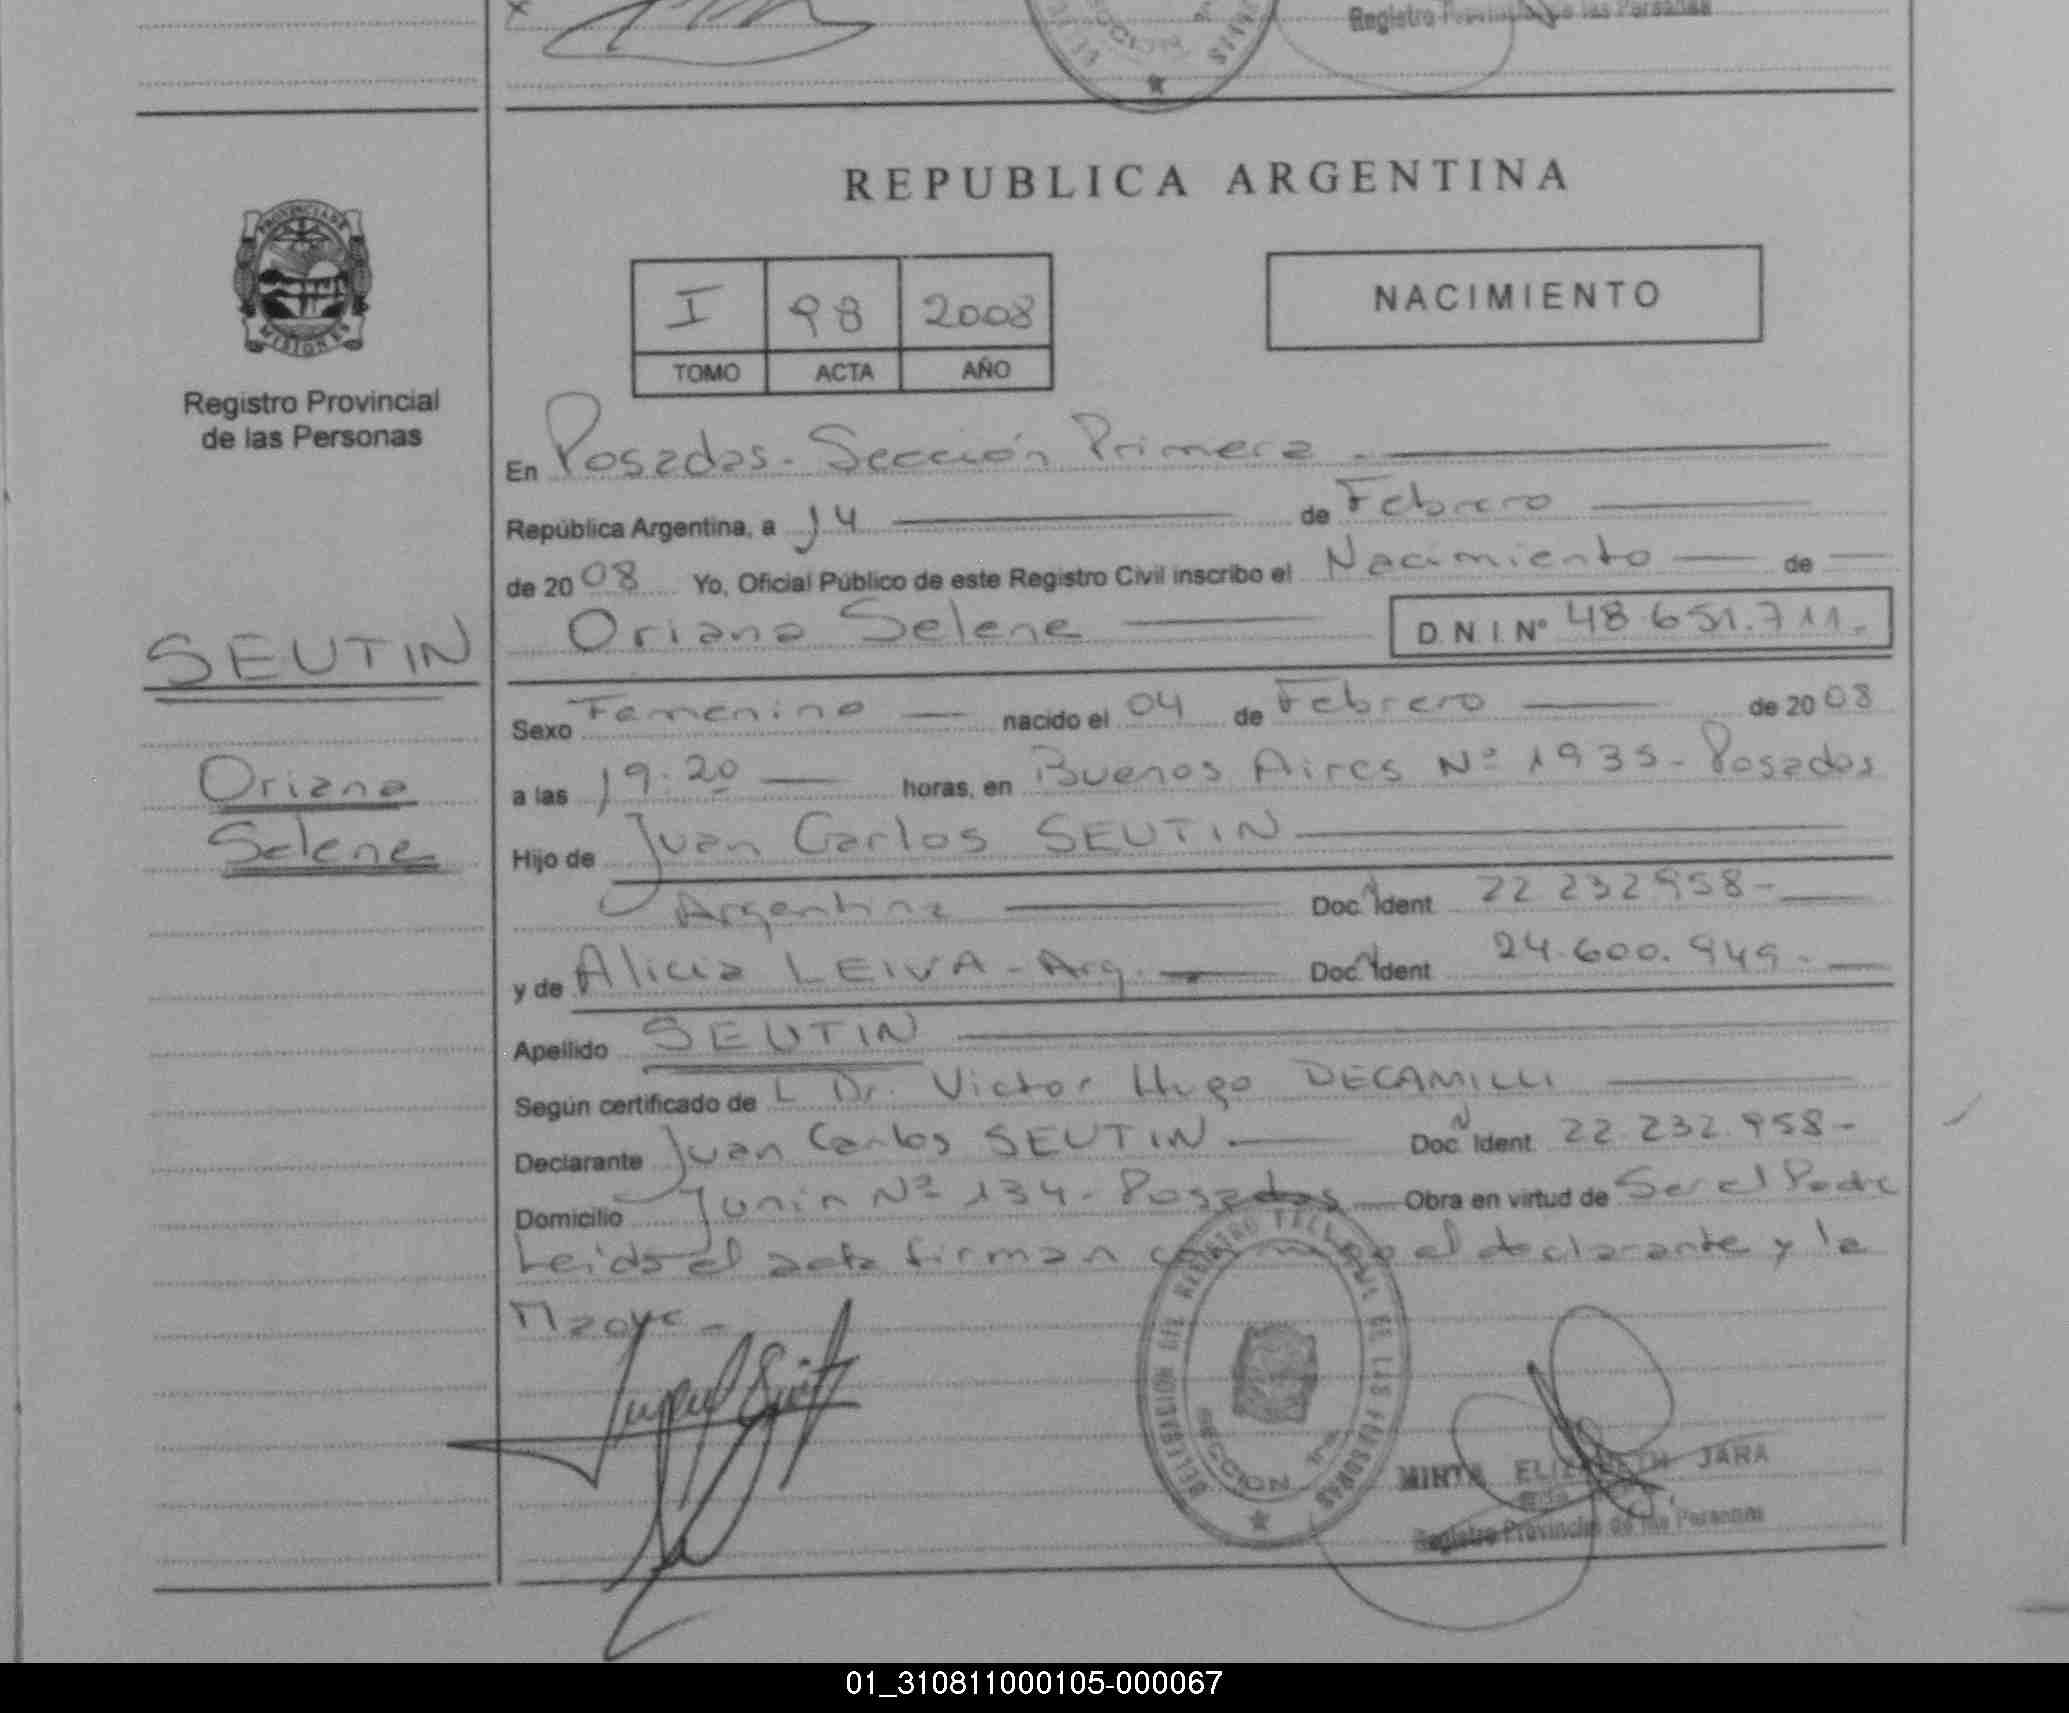 Registro Provincial de las Personas
REPUBLICA ARGENTINA
PROVINCIA DE
MISIONES
Registro Provincial
de las Personas
I 98 2008
TOMO ACTA AÑO
NACIMIENTO
En Posadas - Sección Primera
República Argentina, a 14 de Febrero
de 2008 Yo, Oficial Público de este Registro Civil inscribo el Nacimiento de
Oriana Selene D.N.I. Nº 48.651.711.
SEUTIN
Oriana
Selene
Sexo Femenino nacido el 04 de Febrero de 2008
a las 19.20 horas, en Buenos Aires Nº 1935 - Posadas
Hijo de Juan Carlos SEUTIN
Argentina Doc. Ident. 22.232.958-
y de Alicia LEIVA - Arg. Doc. Ident. 24.600.949.-
Apellido SEUTIN
Según certificado de L Dr. Victor Hugo DECAMILLI
Declarante Juan Carlos SEUTIN. Doc. Ident. 22.232.958-
Domicilio Junin Nº 134 - Posadas Obra en virtud de Ser el Padre
Leida el acta firman el declarante y la
SECCION
MIRTA ELIZABETH JARA
Registro Provincial de las Personas
01_310811000105-000067